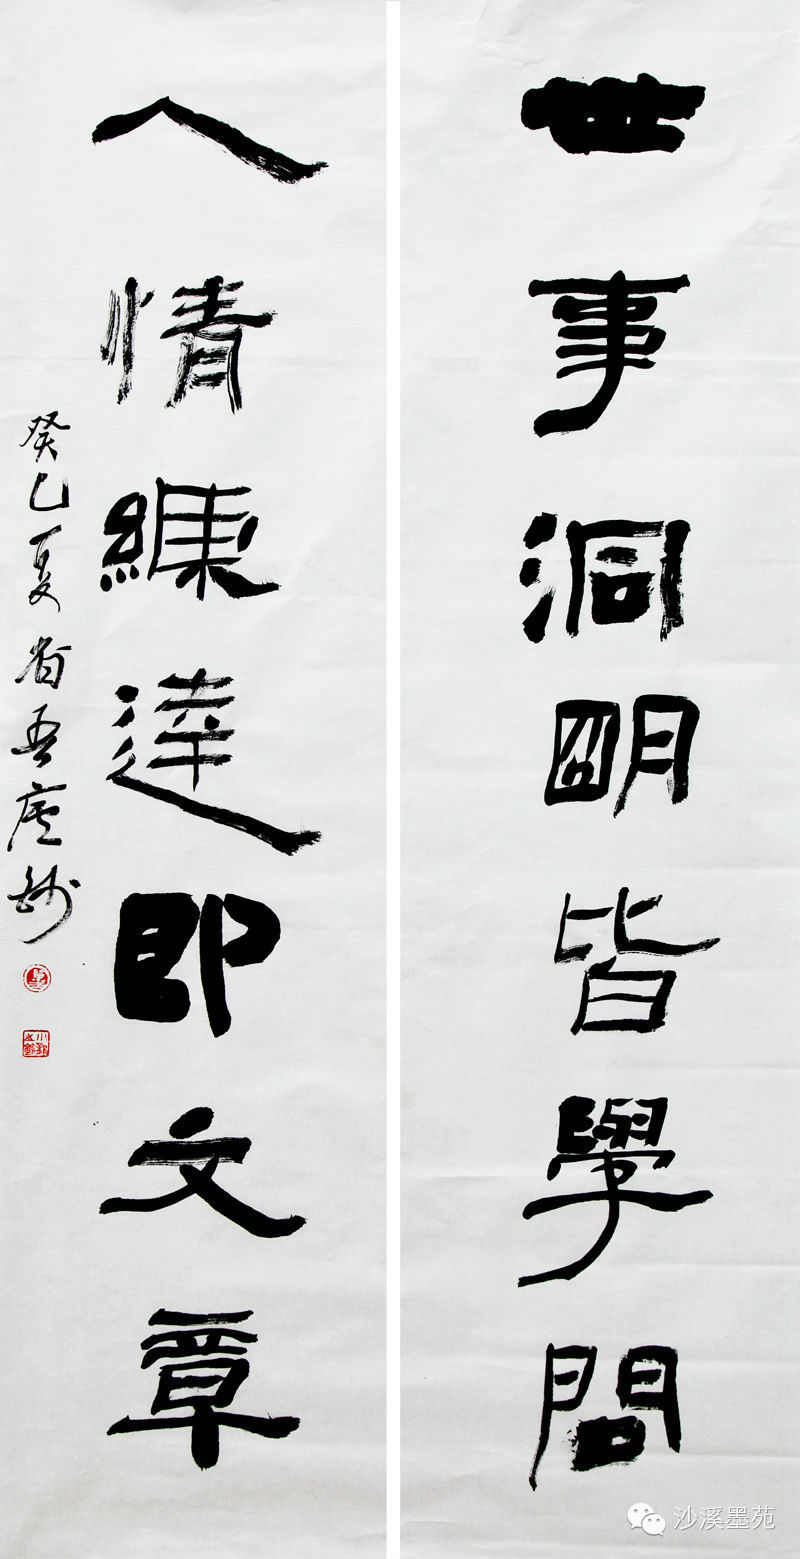 世事洞明皆學問
人情練達即文章
癸巳夏省吾廬
沙溪墨苑